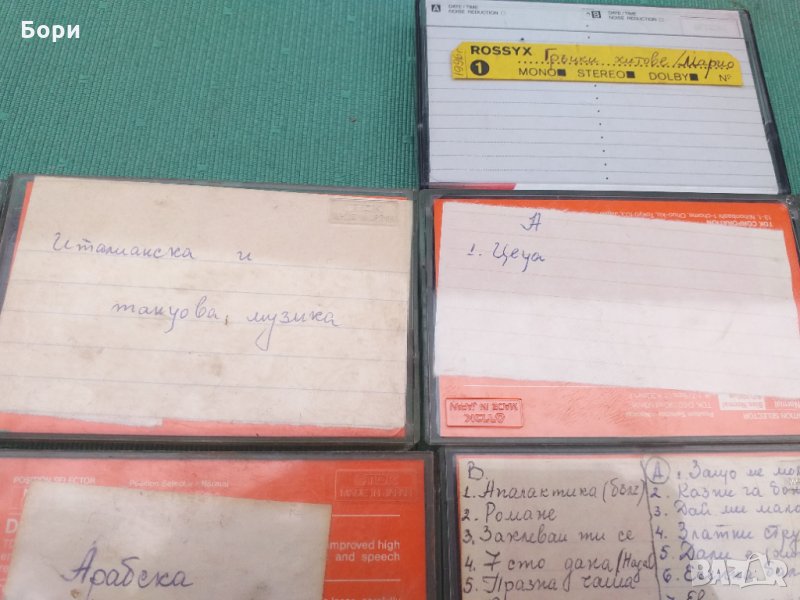 Бори
A DATE/TIME
NOISE REDUCTION
B DATE/TIME
NOISE REDUCTION
ROSSYX Гръцки хитове /Марио
1 MONO STEREO DOLBY Nº
Италианска и
танцова музика
TDK CORPORATION
A
1. Цеца
TDK
MADE IN JAPAN
POSITION SELECTOR
Position Selector - Normal
TDK
MADE IN JAPAN
improved high
and speech
Арабска
B
1. Апалактика (бълг
2. Романе
3. Заклевай ти се
4. 7 сто дана
5. Празна чаша
A 1. Защо не мо
2. Казни га бо
3. Дай ми мало
4. Златни стру
5. Дари
6.
BAZAR